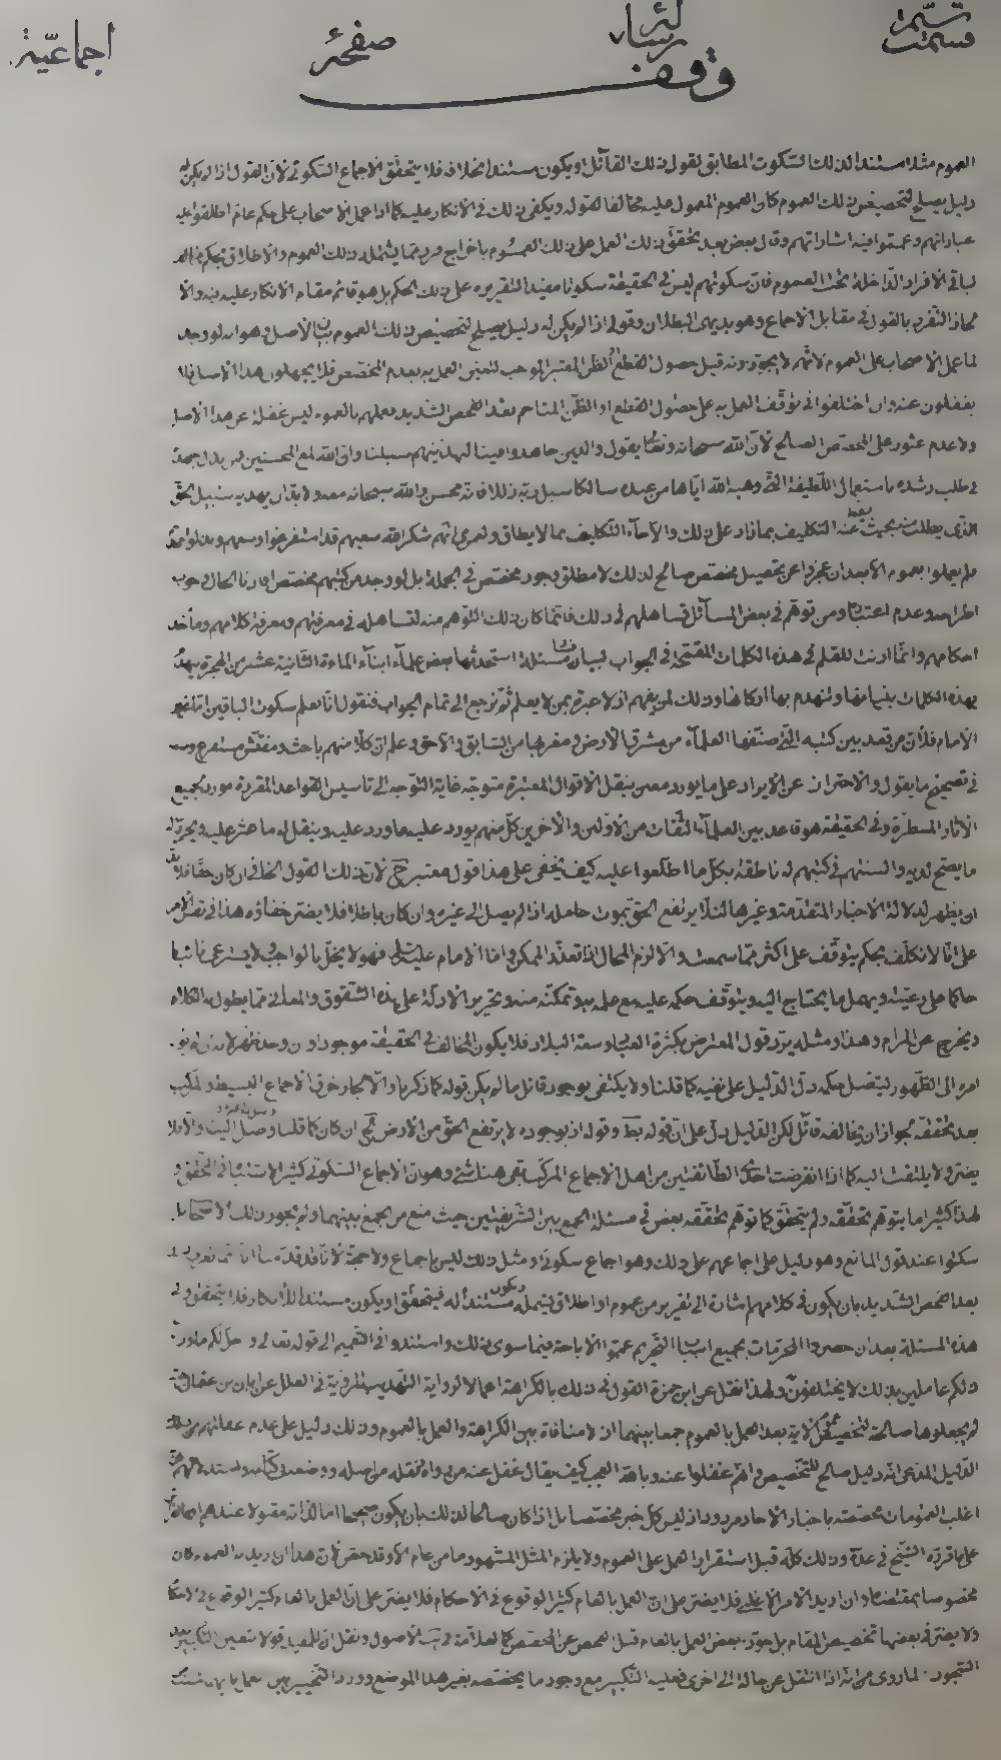 قسمت رسالهٔ صفحهٔ اجماعیّة
وقف
العموم مثلا مستند الذلك السكوت المطابق لقول ذلك القائل ويكون مستندا لخلافه فلا يتحقق الاجماع السكوتى لان القول اذا لم يكن له
دليل يصلح لتخصيص ذلك العموم كان العموم المعمول عليه مخالفا لقوله ويكفى ذلك فى الانكار عليه كما اذا عمل الاصحاب على حكم عام اطلقوا عليه
عباراتهم وعمموا فيه اشاراتهم وقال بعض بعد تحقق ذلك العمل على ذلك العموم باخراج فرد مما يشمله ذلك العموم والاطلاق بحكم
لباقى الافراد الداخلة تحت العموم فان سكوتهم ليس فى الحقيقة سكوتا مفيدا لتقريره على ذلك الحكم بل هو قائم مقام الانكار عليه فيه والا
لجاز التفرد بالقول فى مقابل الاجماع وهو بديهى البطلان وقولى اذا لم يكن له دليل يصلح لتخصيص ذلك العموم بيان الاصل وهو انه لو وجد
لما عمل الاصحاب على العموم لانهم لا يجوزونه قبل حصول القطع او الظن المعتبر الموجب لتعين العمل به بعدم المخصص فلا يجهلون هذا الاصل ولا
يغفلون عنه وان اختلفوا فى توقف العمل به على حصول القطع او الظن المتاخم بعد الفحص الشديد فعملهم بالعموم ليس غفلة عن هذا الاصل
ولا عدم عثور على المخصص الصالح لان الله سبحانه وتعالى يقول والذين جاهدوا فينا لنهدينهم سبلنا وان الله لمع المحسنين فمن بذل جهده
فى طلب رشده باستعمال اللطيفة التى وهبه الله اياها من عبده سالكا سبل ربه ذللا فانه محسن والله سبحانه معه ولا بد ان يهديه سبيل الحق
الذى يطلب منه بحيث يسقط عنه التكليف بما زاد على ذلك والا جاء التكليف بما لا يطاق ولعمرى انهم شكر الله سعيهم قد استفرغوا وسعهم وبذلوا جهدهم
فلم يعملوا بعموم الا بعد ان عجزوا عن تحصيل مخصص صالح لذلك لا مطلق وجود مخصص فى الجملة بل لو وجد من كتبهم مخصص افادنا الحال وجوب
اطراحه وعدم اعتباره ومن توهم فى بعض المسائل تساهلهم فى ذلك فانما كان ذلك التوهم منه لتساهله فى معرفتهم ومعرفة كلامهم ومأخذ
احكامهم وانما اذنت للقلم فى هذه الكلمات المقتحمة فى الجواب لبيان مسئلة استحدثها بعض علماء ابناء المائة الثانية عشر من الهجرة يهد
بهذه الكلمات بنيانها وتنهدم بها اركانها وذلك لمن يفهم اذ لا عبرة بمن لا يعلم ثم نرجع الى تمام الجواب فنقول انا نعلم سكوت الباقين اما غير
الامام فلان من تصد بين كتبه التى صنفها العلماء من مشرق الارض فى مغربها من السابق واللاحق وعلم ان كلا منهم باحث ومفتش مستفرغ وسعه
فى تصحيح ما يقول والاحتراز عن الايراد على ما يورد معين بنقل الاقوال المعتبرة متوجه غاية التوجه الى تاسيس القواعد المقررة مورد لجميع
الاثار المسطرة وفى الحقيقة هو قاعد بين العلماء الثقات من الاولين والاخرين كل منهم يورد عليه ما ورد عليه وينقل له ما عثر عليه ويحرر له
ما يصح لديه والسنتهم فى كتبهم له ناطقة بكل ما اطلعوا عليه كيف يخفى على هذا قول معتبر ح لان ذلك القول الخافى ان كان حقا فلا بد
ان يظهر لدلالة الاخبار المتقدمة وغيرها لئلا يرتفع الحق بموت حامله اذا لم يصل الى غيره وان كان باطلا فلا يضر خفاؤه هذا فى نفس الامر
على انا لا نكلف بحكم يتوقف على اكثر مما سمعت والا لزم المحال اذا تعدد الممكن واما الامام عليه السلام فهو لا يخل بالواجب ولا يسترعى نائبا
حاكما على رعيته ويهمل ما يحتاج اليه ويتوقف حكمه عليه مع علمه به وتمكنه منه وتحرير الادلة على هذه الشقوق والمعانى مما يطول به الكلام
ويخرج عن المرام وهذا ومثله يرد قول المعترض بكثرة العباد وسعة البلاد فلا يكون المخالف فى الحقيقة موجودا
امره الى الظهور ليتصل حكمه دل الدليل على نفيه كما قلنا ولا يكتفى بوجود قائل ما لم يكن قوله كما ذكرنا والا لجاز خرق الاجماع البسيط والمركب
بعد تحققه لجواز ان يخالفه قائل لكن الدليل دل على ان قوله بط وقوله اذ بوجوده لا يرتفع الحق من الارض ح ان كان كما قلنا وصل الينا والا فلا
يضر ولا يلتفت اليه كما اذا انقرضت احدى الطائفتين من اهل الاجماع المركب بقى هنا شئ وهو ان الاجماع السكوتى كثير الاشتباه فى التحقق و
لهذا كثيرا ما يتوهم تحققه ولم يتحقق كما توهم تحققه بعض فى مسئلة الجمع بين الشريفتين حيث منع من الجمع بينهما ولم يجوز ذلك الاصحاب بل
سكتوا عند قول المانع وهو دليل على اجماعهم على ذلك وهو اجماع سكوتى ومثل ذلك ليس باجماع ولا حجة لانا قد قدمنا
بعد الفحص الشديد بان يكون فى كلامهم اشارة الى تقرير من عموم او اطلاق يشمله ويكون مستندا له فيتحقق او يكون مستندا للانكار فلا يتحقق وفى
هذه المسئلة بعد ان حصروا المحرمات بجميع اسباب التحريم عمموا الاباحة فيما سوى ذلك واستندوا فى التعميم الى قوله تعالى واحل لكم ما وراء
ذلكم عاملين بذلك لا يختلفون ولهذا نقل عن ابن حمزة القول فى ذلك بالكراهة اعمالا لرواية التهذيب المروية فى العلل عن ابان بن عثمان
لم يجعلوها صالحة لتخصيص عموم الاية بعد العمل بالعموم جمعا بينهما اذ لا منافاة بين الكراهة والعمل بالعموم وذلك دليل على عدم غفلتهم عن ذلك
الدليل المدعى انه دليل صالح للتخصيص وانهم غفلوا عنه وبالله العجب كيف يقال غفل عنه من رواه ونقله من اصله ووضعه فى كتابه
اغلب العمومات مخصصة باخبار الاحاد مردود اذ ليس كل خبر مخصصا بل اذا كان صالحا لذلك بان يكون صحيحا اما لذاته مقبولا عندهم
على ما قرره الشيخ فى عدة وذلك كله قبل استقرار العمل على العموم ولا يلزم المثل المشهور ما من عام الا وقد خص فان هذا ان اريد به العموم كان
مخصوصا بمقتضاه وان اريد الامر الاغلبى فلا يضر على ان العمل بالعام كثير الوقوع فى الاحكام فلا يضر على ان العمل بالعام كثير الوقوع فى الاحكام
ولا يضر فى بعضها تخصيص المقام بل جوز بعض العمل بالعام قبل الفحص عن المخصص كالعلامة فى يب الاصول ونقل ان للمفيد قولا بتعيين التكبير بعد
التشهد لما روى من انه اذا انتقل عن حالة الى اخرى فعليه التكبير مع وجود ما يخصصه بغير هذا الموضع وورد التخيير